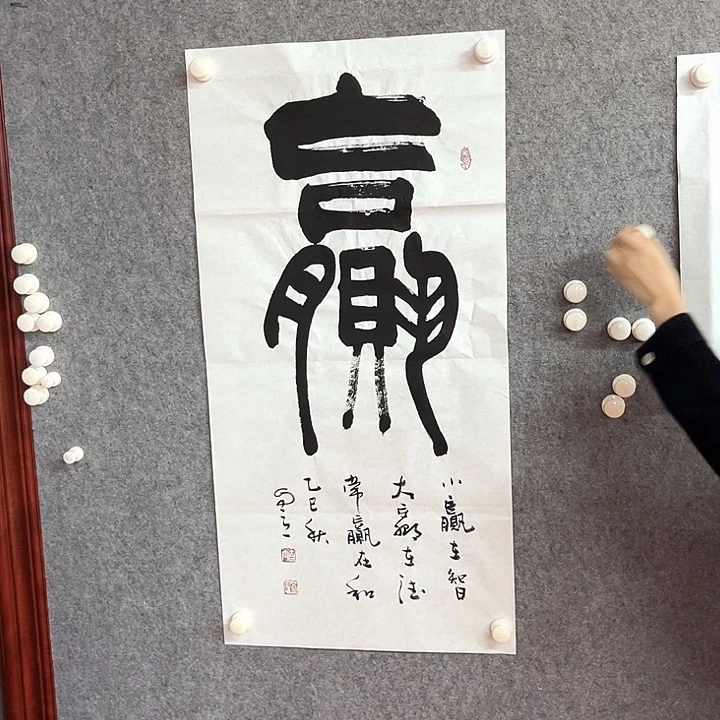 赢
小赢在智
大赢在德
常赢在和
乙巳秋